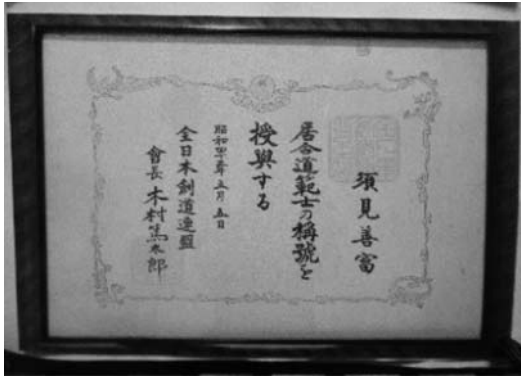 須見善富
居合道範士の稱號を
授與する
昭和 年五月五日
全日本剣道連盟
會長木村篤太郎